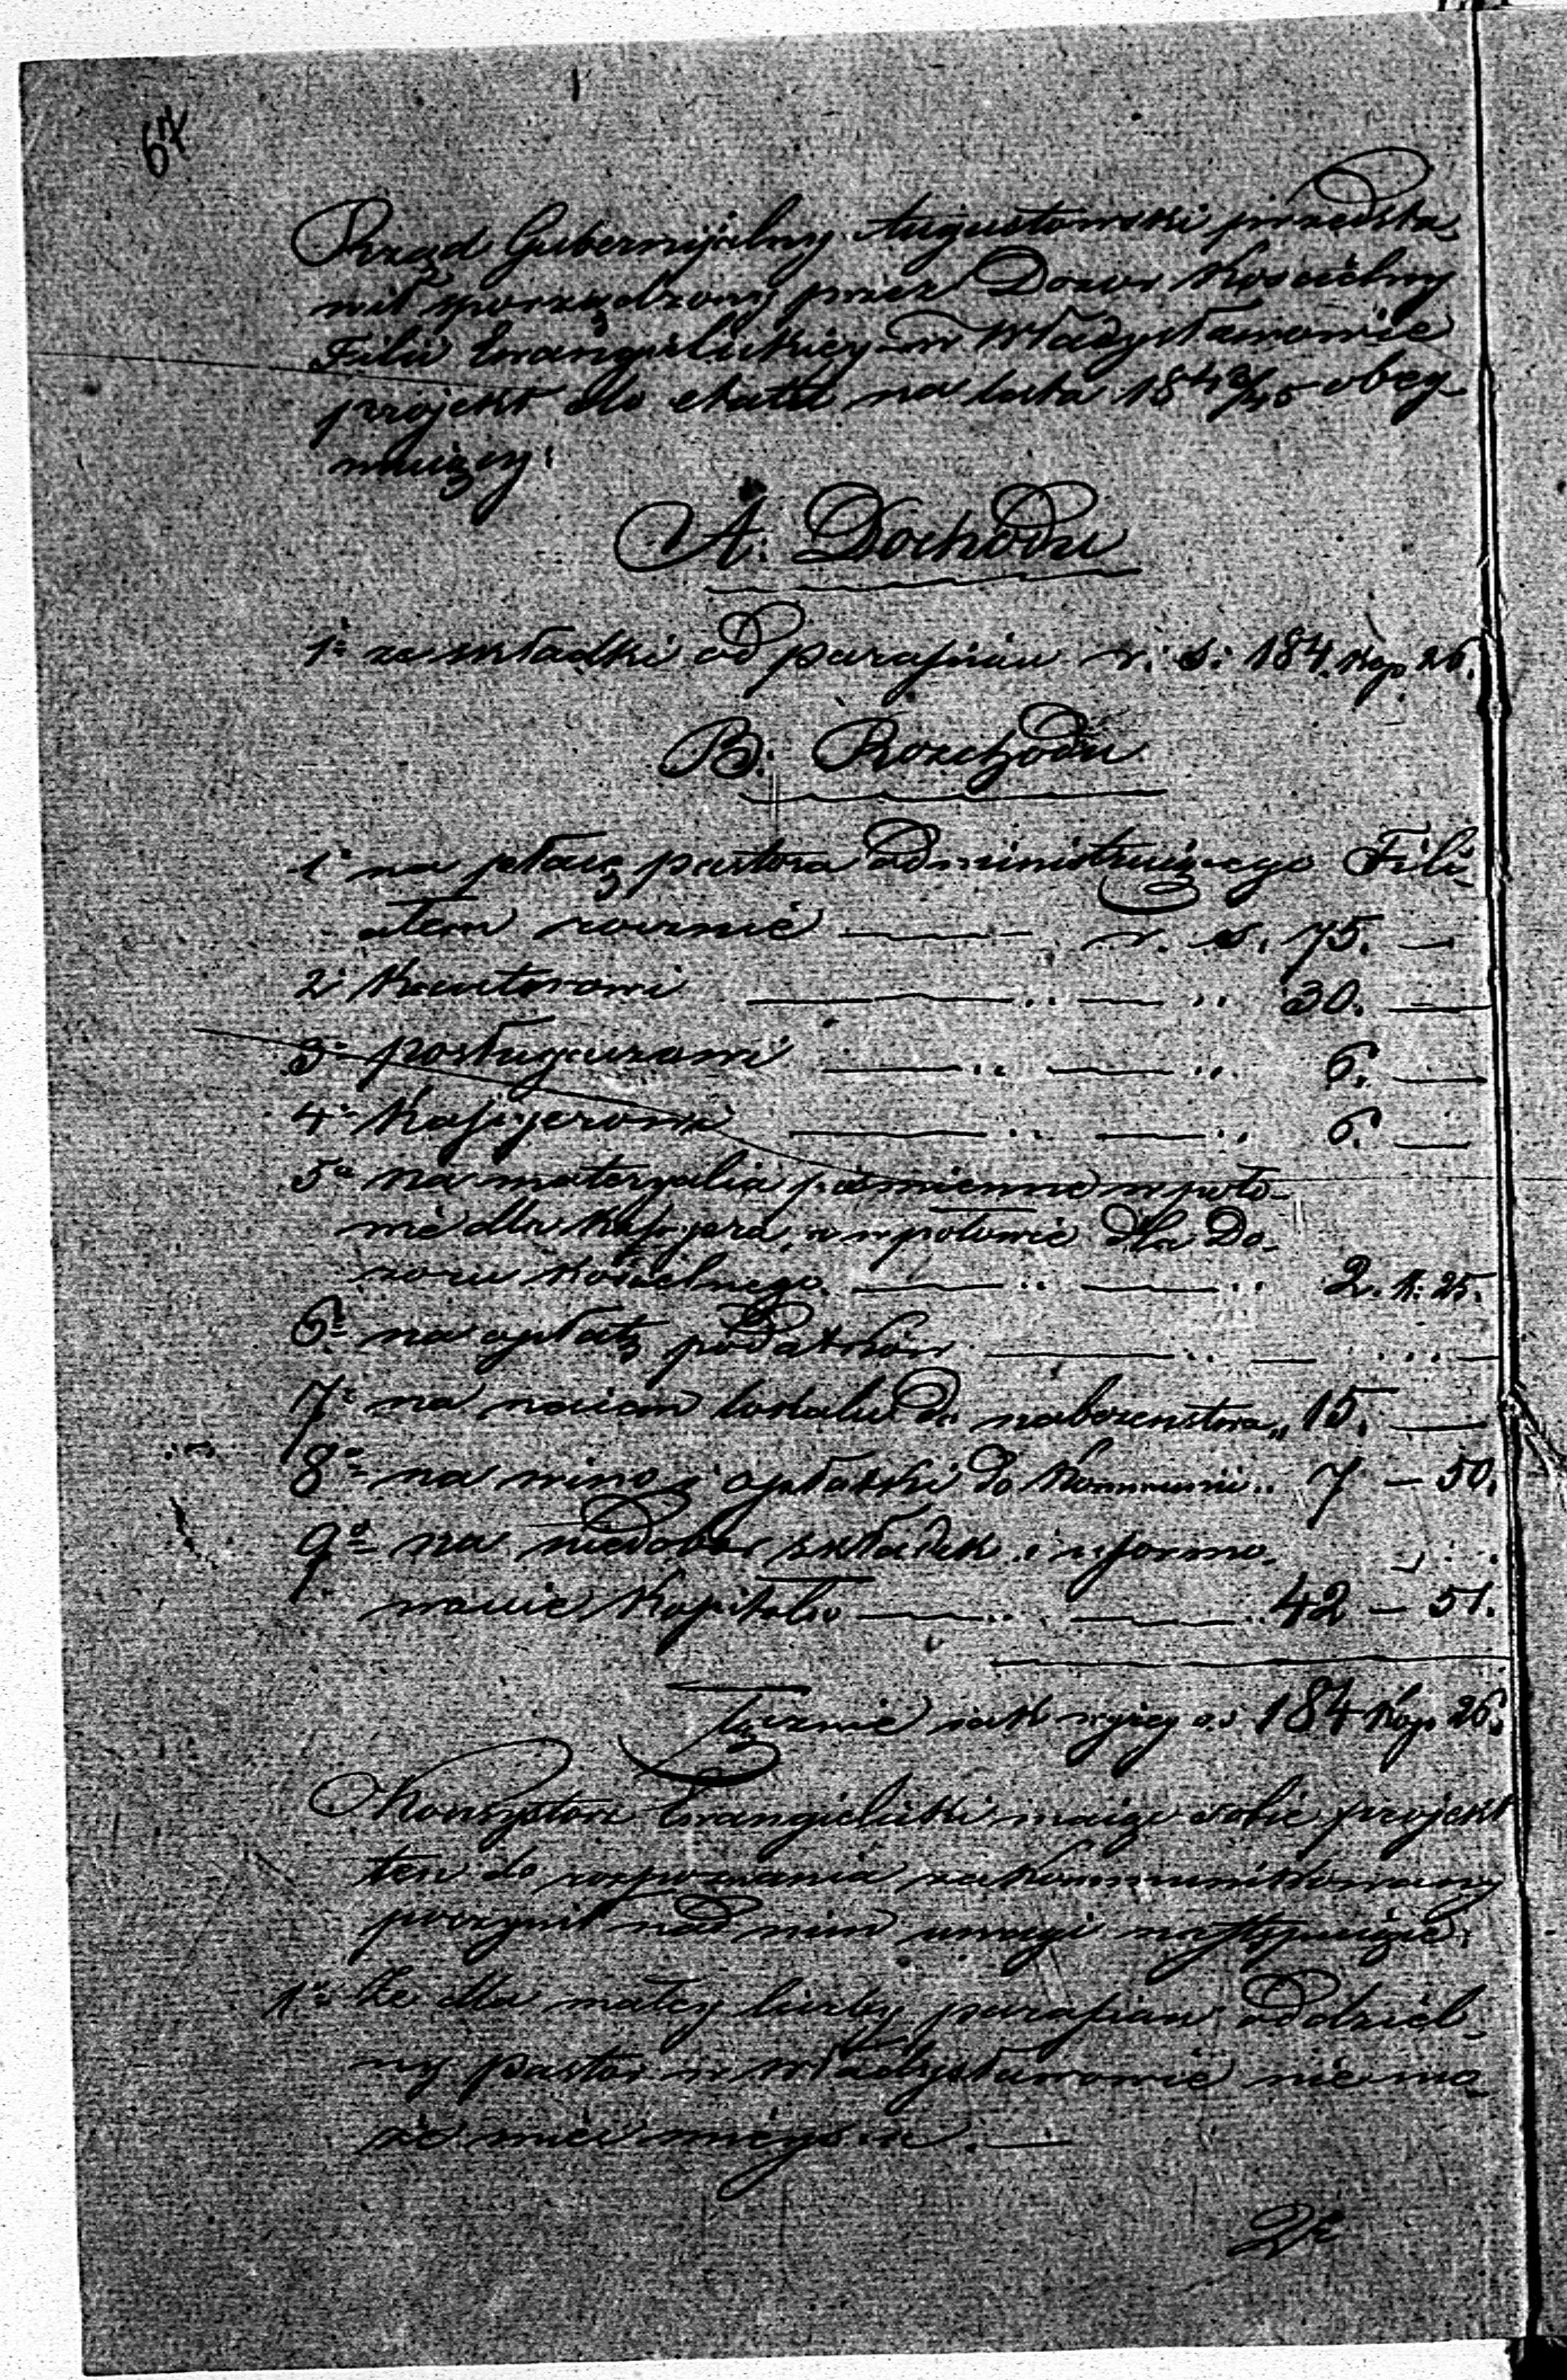 67
Rząd Gubernijalny Augustowski przedsta-
wił sporządzony przez Dozor Kościelny
Filii Ewangielickiey w Władysławowie
projekt do etatu na lata 1843/45 obey-
muiący:
A. Dochodu
1º ze składki od parafian r. s. 184. kop. 26.
B. Rozchodu
1º na płacę pastora administruiącego Fili-
ałem rocznie — r. s. 75. —
2º Kantorowi — „ — „ 30. —
3º posługaczowi — „ — „ 6. —
4º Kassyerowi — „ — „ 6. —
5º na materyalia piśmienne w poło-
wie dla Kassyera, a w połowie dla Do-
zoru Kościelnego — „ — „ 2. k. 25.
6º na opłatę podatków — „ — „ —
7º na naiem lokalu do nabożeństwa „ 15. —
8º na wino i opłatki do Kommunii „ 7 — 50.
9º na niedobor składek i uformo-
wanie Kapitału — „ — „ 42 — 51.
Łącznie iak wyżey r. s. 184 kop. 26.
Konsystorz Ewangielicki maiąc sobie projekt
ten do rozpoznania zakommunikowany
poczynił nad nim uwagi następuiące:
1º Że dla małey liczby parafian oddziel-
ny pastor w Władysławowie nie mo-
że mieć mieysca. —